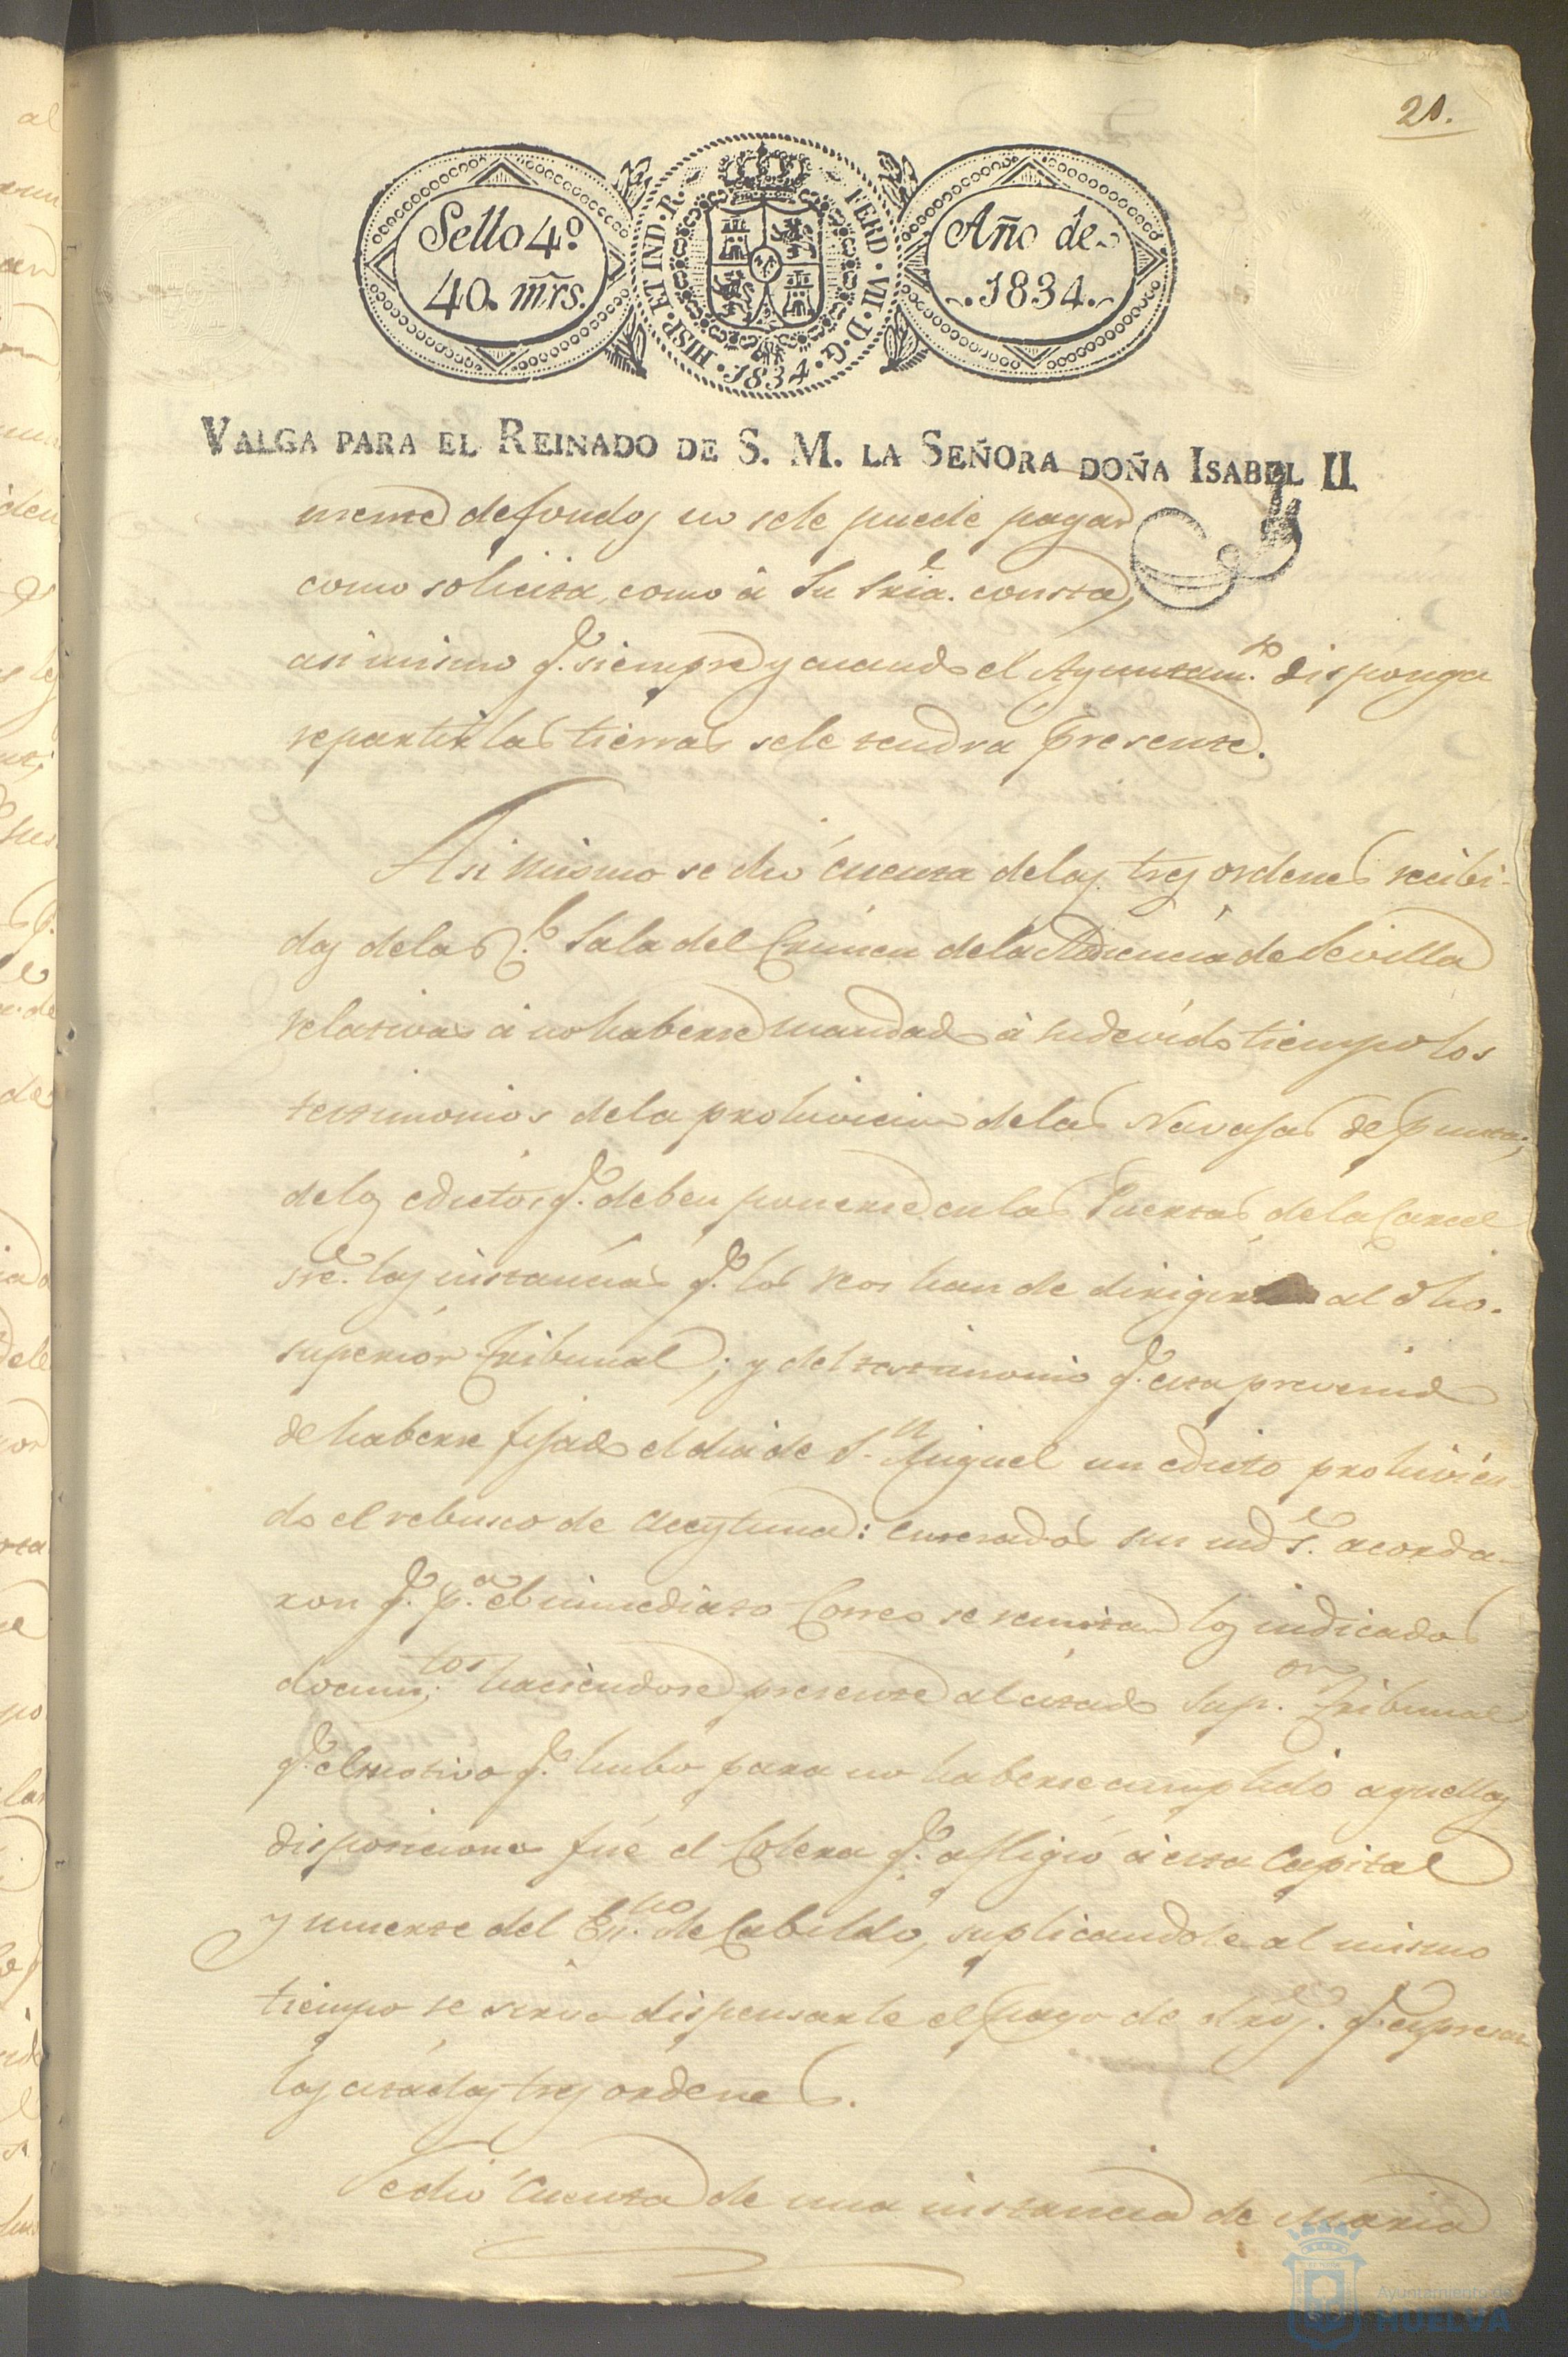 21.
Sello 4.º
40. mrs.
HISP. ET IND. R. FERD. VII. D. G. 1834.
Año de
.1834.
VALGA PARA EL REINADO DE S. M. LA SEÑORA DOÑA ISABEL II
mente de fondos no sele puede pagar
como solicita, como à Su Sria. consta,
asi mismo q.e siempre y cuando el Ayuntam.to disponga
repartir las tierras sele tendra presente.
Asi mismo se dió cuenta delas tres ordenes recibi-
das dela R.l Sala del Crimen dela Audiencia de Sevilla
relativas à no haberse mandado à su devido tiempo los
testimonios dela prohivicion delas Navajas de punta;
delos edictos q.e deben ponerse en las Puertas dela Carcel
sre. las instancias q.e los reos han de dirigir al dho.
superior Tribunal; y del testimonio q.e esta prevenido
de haberse fijado el dia de S.n Miguel un edicto prohivien
do el rebusco de Aceytuna: enterados sus mds.
acorda-
ron q.e p.a el inmediato Correo se remitan los indicados
docum.tos; haciendose presente al citado Sup.or Tribunal
q.e el motivo q.e hubo para no haberse cumplido aquellas
disposiciones fué el Colera q.e afligió à esta Capital
y muerte del Es.no de Cabildo, suplicandole al mismo
tiempo se sirva dispensarle el pago de drs. q.e expresan
las citadas tres ordenes.
Se dió Cuenta de una instancia de Maria
Ayuntamiento de
HUELVA